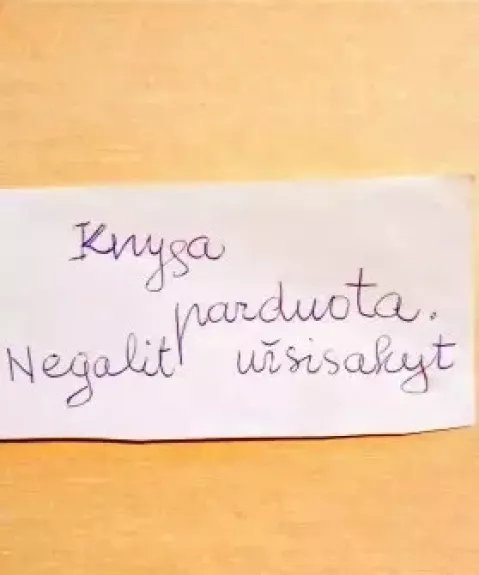 Knyga
parduota.
Negalit užsisakyt